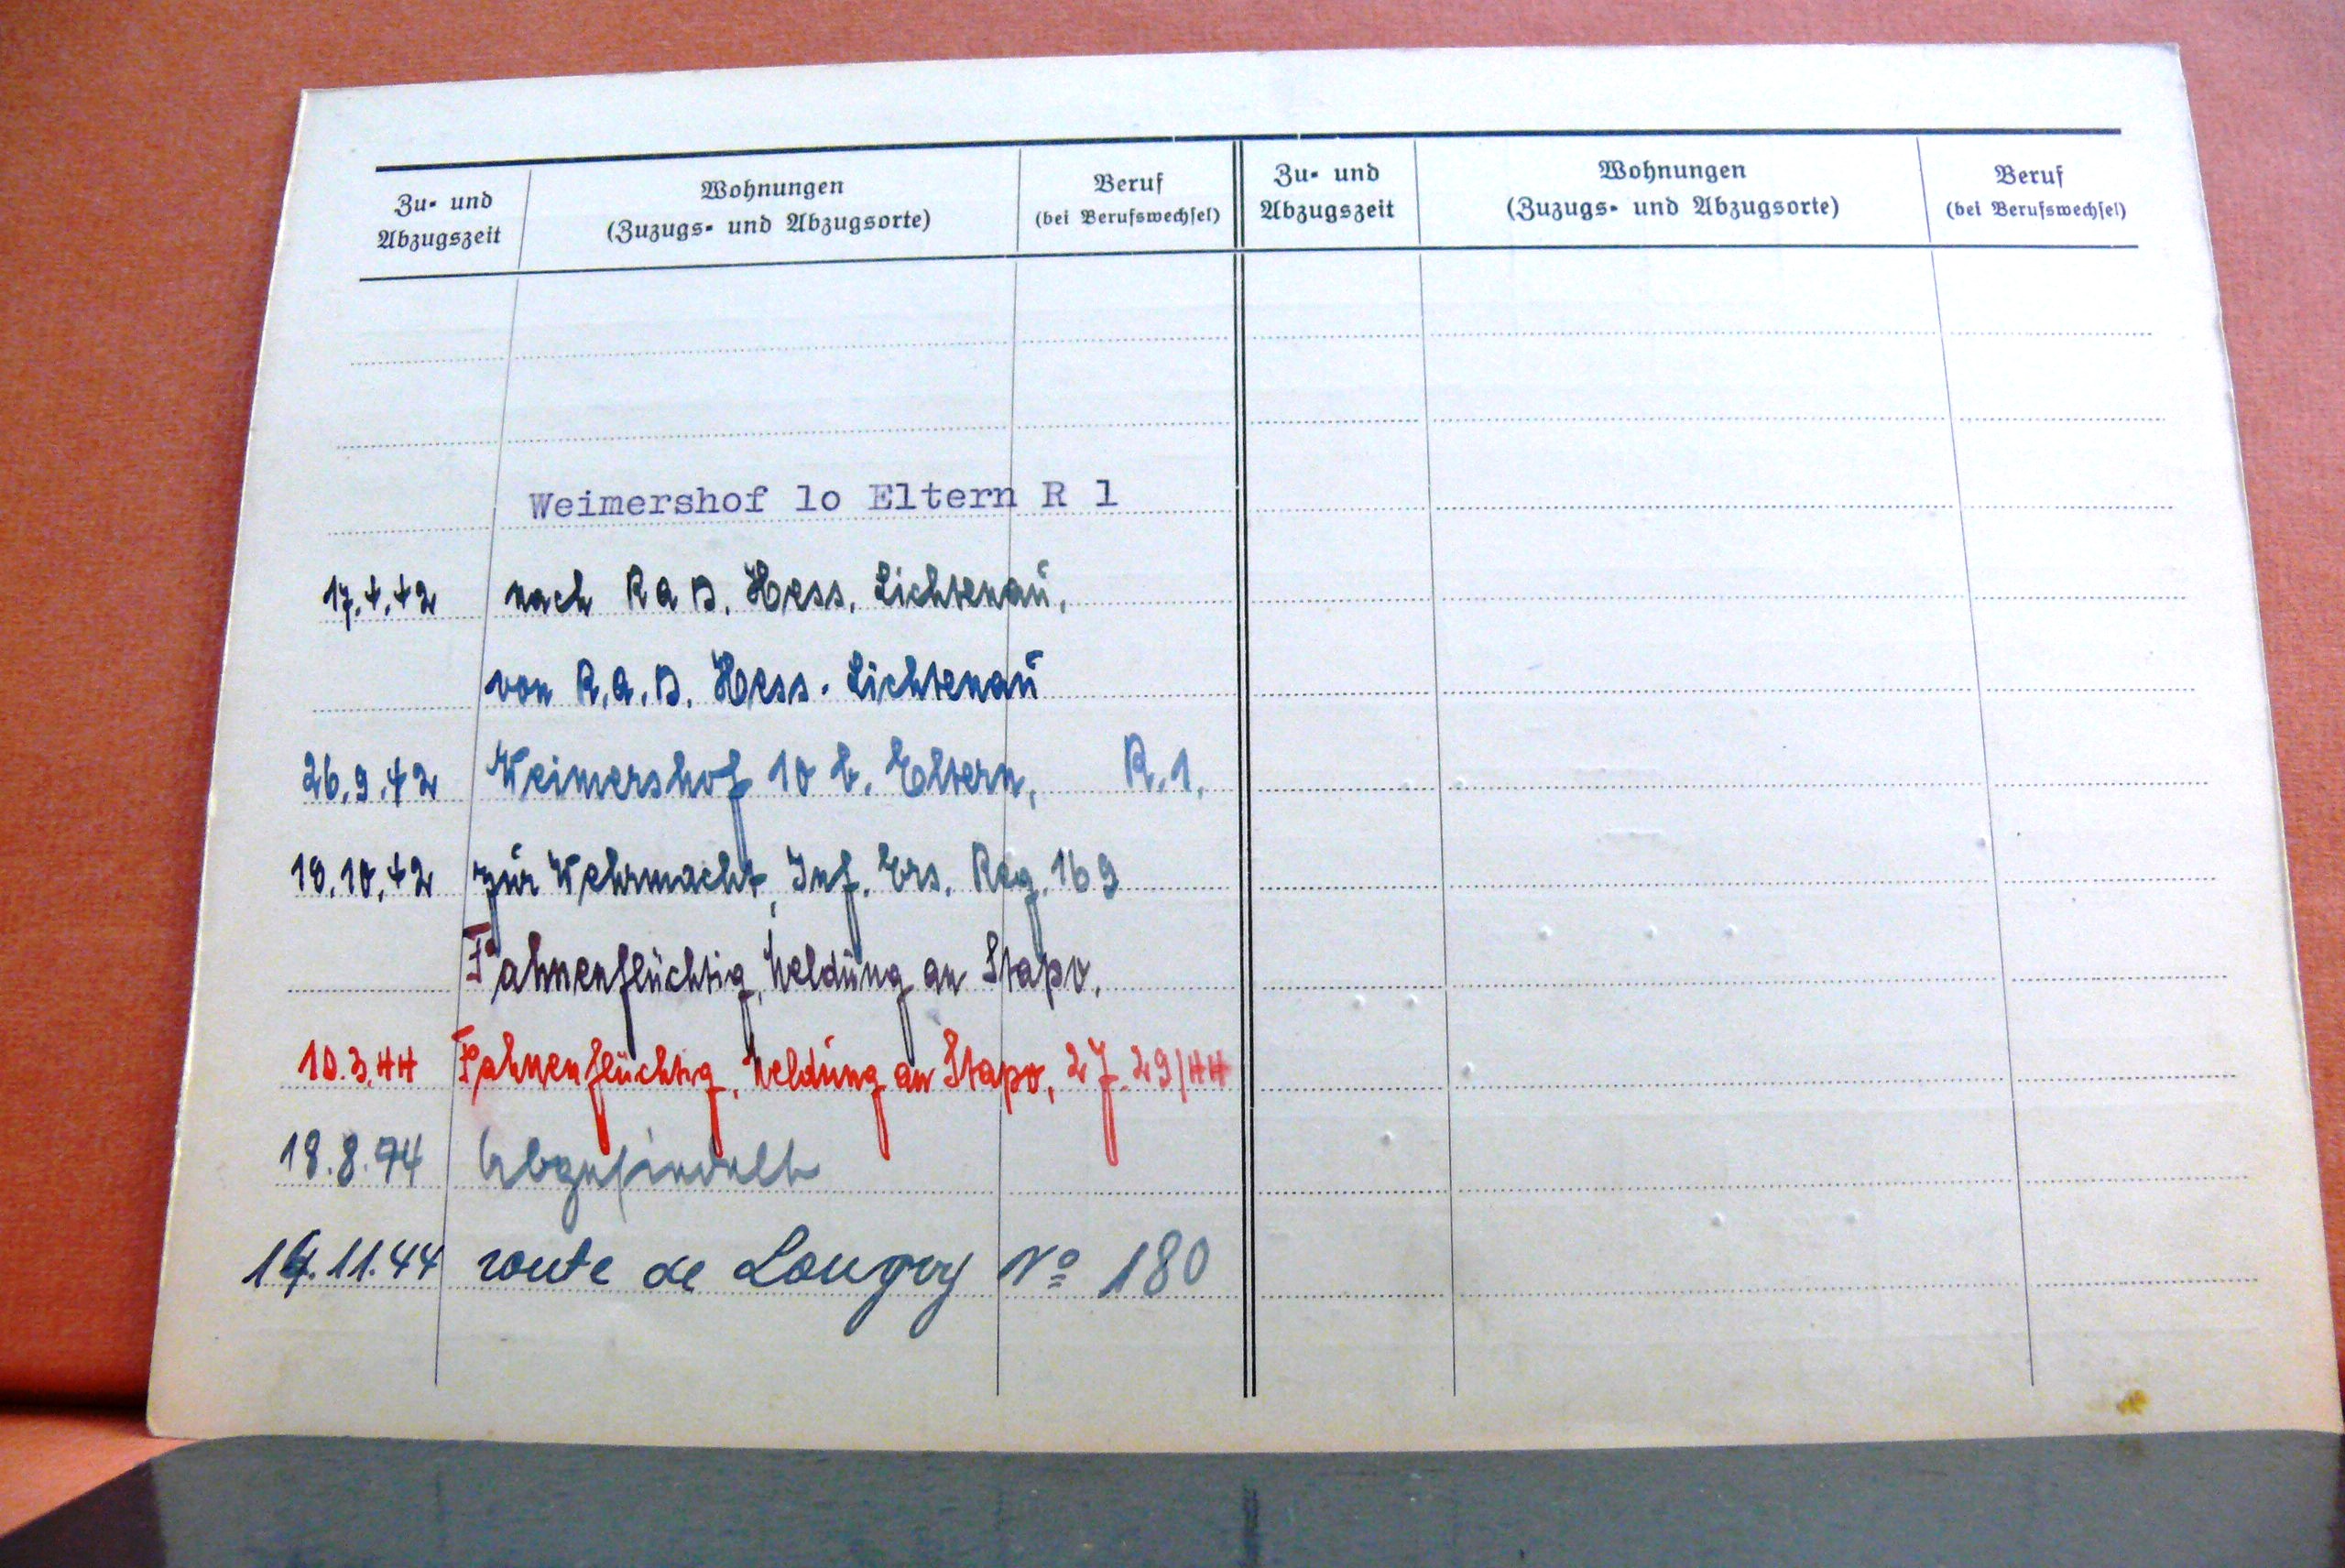 Zu- und Abzugszeit
Wohnungen (Zuzugs- und Abzugsorte)
Beruf (bei Berufswechsel)
Zu- und Abzugszeit
Wohnungen (Zuzugs- und Abzugsorte)
Beruf (bei Berufswechsel)
Weimershof lo Eltern R l
17.4.42 nach R A D. Hess. Lichtenau,
von R.A.D. Hess. Lichtenau
26.9.42 Weimershof 10 b. Eltern, R.1.
19.10.42 zur Wehrmacht, Inf. Ers. Reg. 169
Fahnenflüchtig, Meldung an Stapo.
10.3.44 Fahnenflüchtig, Meldung an Stapo, 29/44
18.8.44 Abgesiedelt
11.44 route de Longwy Nº 180